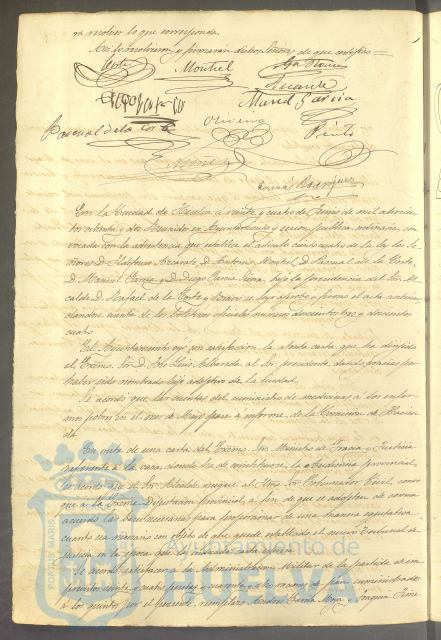 ra resolver lo que corresponda.
Así lo resolvieron y firmarán dichos Señores de que certifico =
Montiel
Alcarde
Manl García
Pascual de la Corte
Pinto
Tomás Rodríguez
En la Ciudad de Huelva a veinte y cuatro de Junio de mil ochocien
tos ochenta y dos. Reunido en Ayuntamiento y sesión pública ordinaria, con
vocada con la advertencia que establece el artículo ciento cuatro de la ley, los Se
ñores D. Ildefonso D. Antonio Montiel, D. Pascual de la Corte,
D. Manuel García y D. Diego García bajo la presidencia del Sor. Al
calde D. Rafael de la Corte y Bravo, se leyó aprobó y firmó el acta anterior,
dándose cuenta de los Boletines oficiales números doscientos tres y doscientos
cuatro
El Ayuntamiento oyó con satisfacción la atenta carta que ha dirigido
el Excmo. Sor. D. José Luis Albareda al Sor. presidente, dando gracias por
haber sido nombrado hijo adoptivo de la Ciudad.
Se acordó que las cuentas del suministro de medicinas a los enfer
mos pobres en el mes de Mayo pase a informe de la Comision de Hacien
da.
En vista de una carta del Excmo. Sor. Ministro de Gracia y Justicia
referente a la casa donde ha de constituirse la Audiencia provincial,
se acordó que el Sor. Alcalde oficie al Sor. Gobernador Civil, como
que a la Excma. Diputacion provincial, a fin de que se adopten de comun
acuerdo las para proporcionar de una manera equitativa
cuanto sea necesario con objeto de que quede establecido el nuevo Tribunal de
justicia en la época que el
Se acordó satisfacer a la Administracion Militar de la partida de im
previstos veinte y cuatro pesetas y noventa y de raciones de pan suministradas
a los quintos por el presente reemplazo Andrés García Joaquín
Ayuntamiento de
HUELVA
PORTUS MARIS